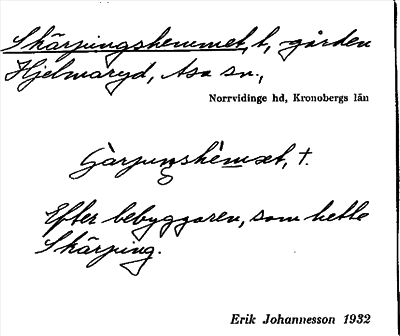 Skärpingshemmet, t, gården
Hjelmaryd, Asa sn.,
Norrvidinge hd, Kronobergs län
Efter bebyggaren, som hette
Skärping.
Erik Johannesson 1932